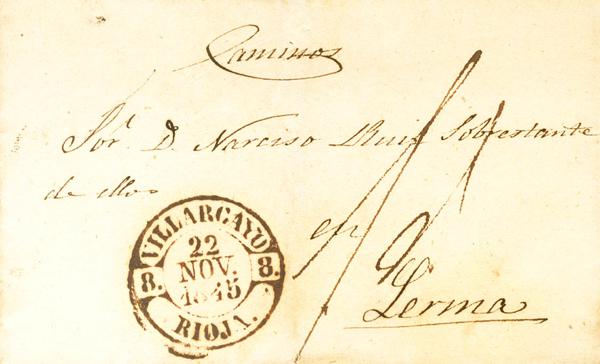 Caminos
Sor. D. Narciso Ruiz Sobrestante
de ellos
en
Lerma
VILLARCAYO
8. 8.
22
NOV.
1845
RIOJA.